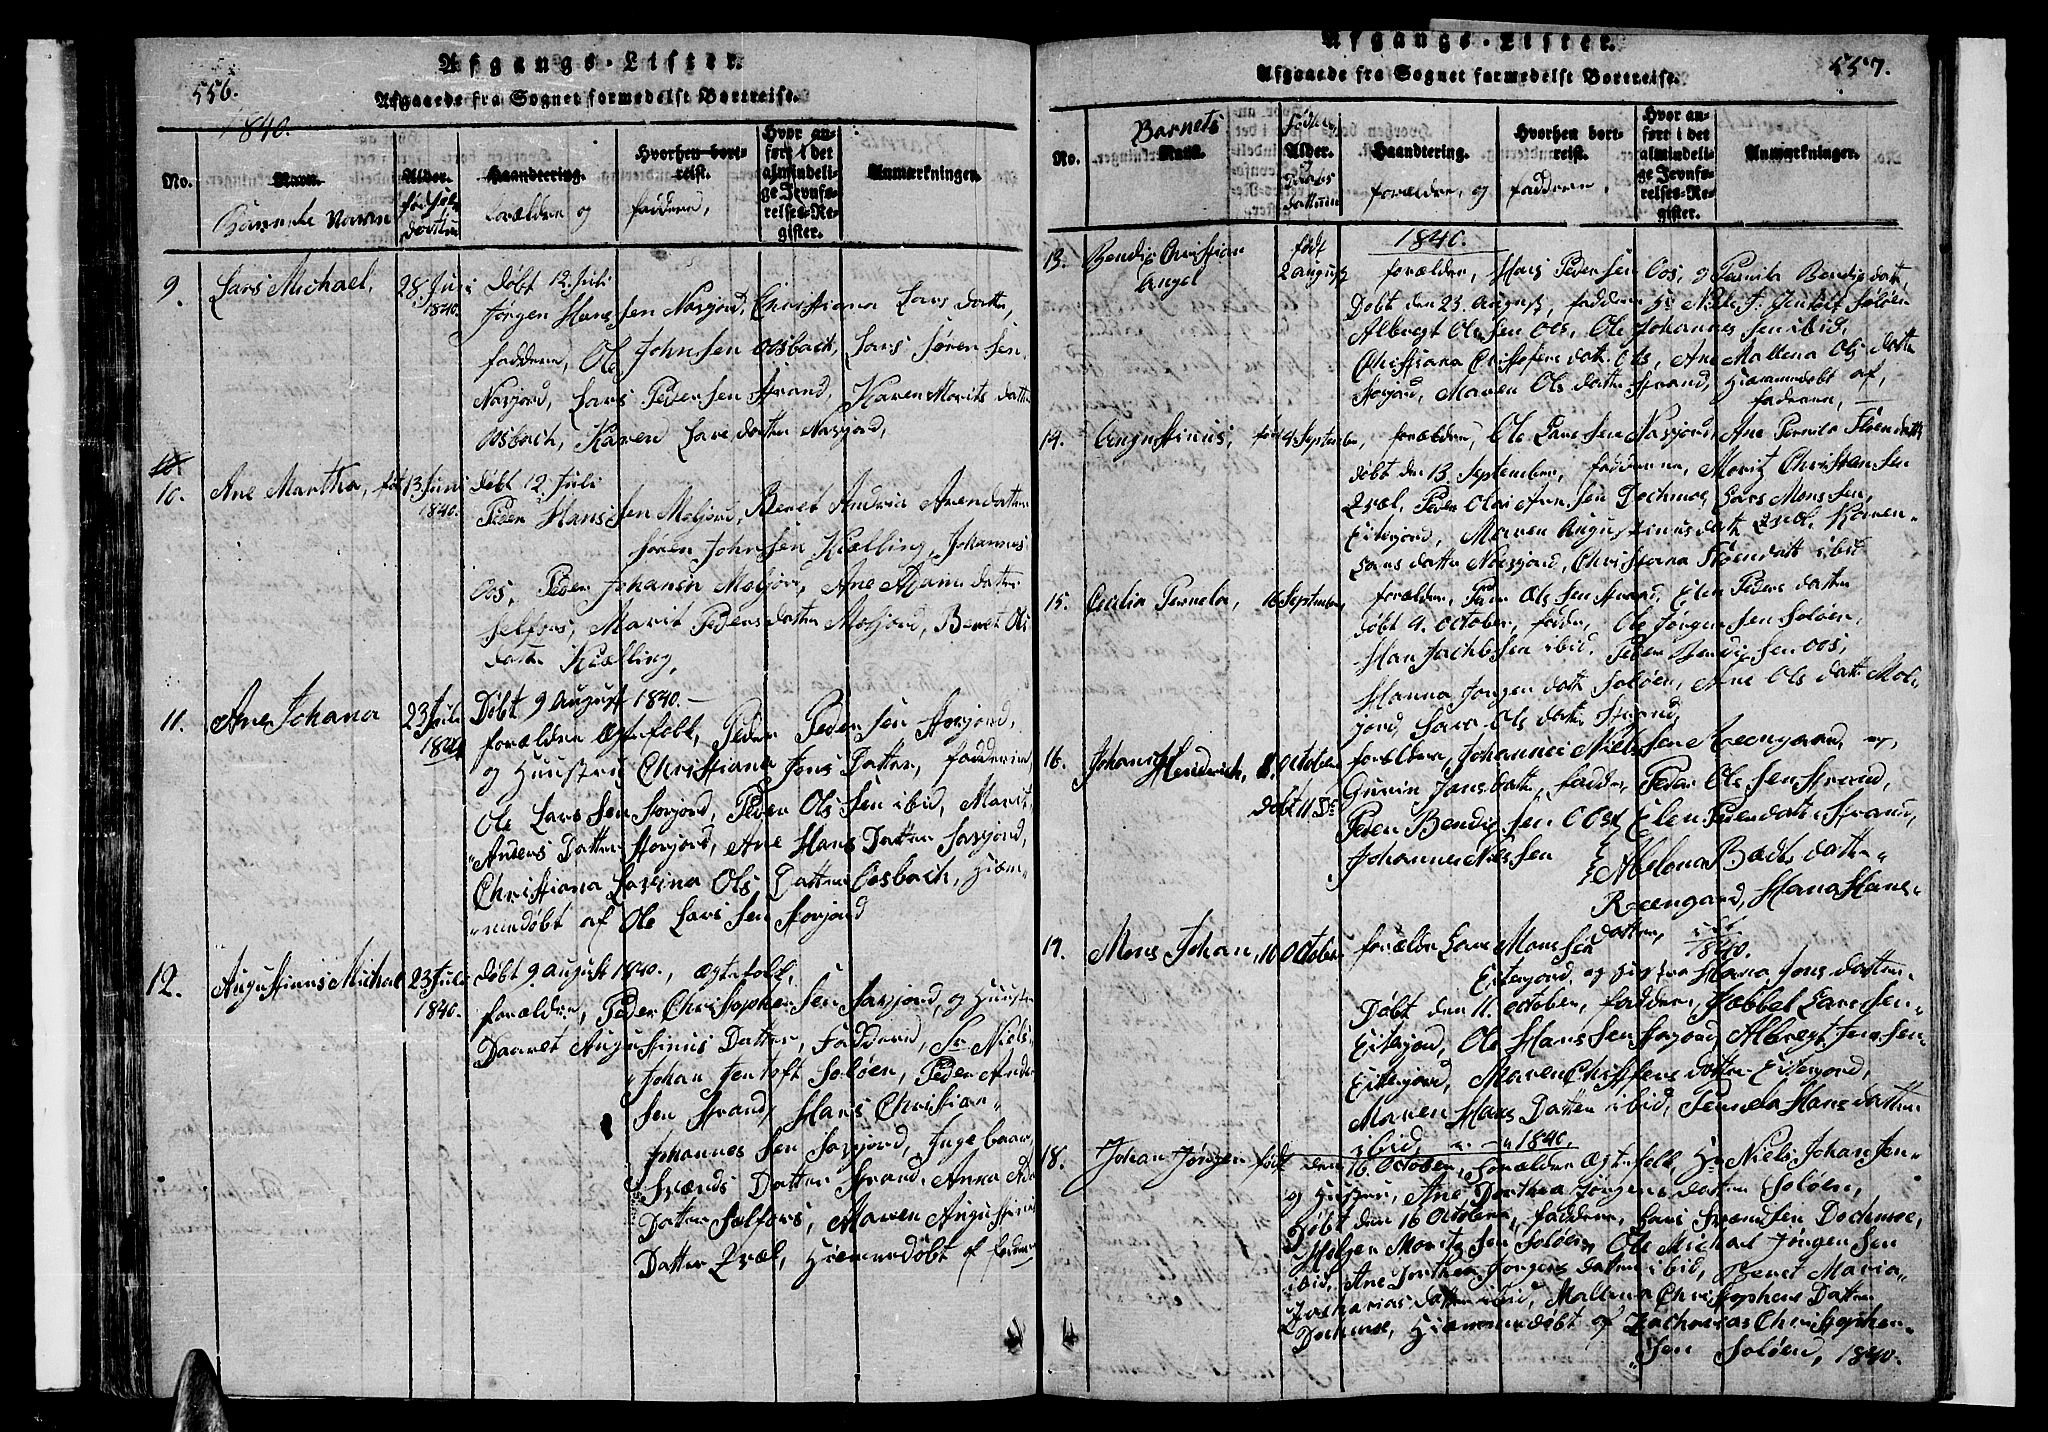 556.
Afgangs-Lister.
Afgaaede fra Sognet formedelst Bortreise.
1840.
No.
Navn.
Alder.
Haandtering.
Hvorhen bort-
reist.
Hvor an-
ført i det
almindeli-
ge Jevnfø-
relses-Re-
gister.
Anmærkninger.
Navn
forældre og
faddere,
9. Lars Michael, 28 Juni 1840. døbt 12. Juli
Jørgen Hans Sen Naxjord, Christiana Lars datter,
faddere, Ole John Sen Oosbach, Lars Søren Sen
Naxjord, Lars Peder Sen Strand, Karen Morits datter
Oosbach, Karen Lars datter Naxjord,
10. Ane Martha, 13 Juni 1840. døbt 12. Juli
Peder Hans Sen Meljord, Beret Andrea datter
Søren John Sen Kielling, Johannes
Oos, Peder Johan Meljord, Ane datter
Selfors, Marit Peders datter Meljord, Beret Ols
datter Kielling,
11. Ane Johana 23 Juli 1840 Døbt 9 august 1840.
forældre Ægtefolk, Peder Peder Sen Storjord,
og Huustru Christiana Jons Datter, fadderne,
Ole Lars Sen Storjord, Peder Ols Sen ibid, Marit
Anders Datter Storjord, Ane Hans Datter Saxjord,
Christiana Lovina Ols Datter Oosbach, Hiem-
medøbt af Ole Lars Sen Storjord
12. Augustinus Michal 23 Juli 1840. døbt 9. august 1840., ægtefolk,
forældre, Peder Christophersen Saxjord, og Huustru
Daaret Augustinus Datter, Faddere, Niels
Johan Jentoft Soløen, Peder
Sen Strand, Hans Christian
Johannes Sen Saxjord, Ingebaar
Svends Datter Strand, Anna
Datter Selfors, Maren Augustinus
Datter Qval, Hiemmedøbt af
557.
Afgangs-Lister.
Afgaaede fra Sognet formedelst Bortreise.
No.
Barnets
Navn.
Alder.
Daabs
Dattum
Haandtering.
Hvorhen bort-
reist.
Hvor an-
ført i det
almindeli-
ge Jevnfø-
relses-Re-
gister.
Anmærkninger.
forældre, og
faddere,
1840.
13. Bendix Christian Angel født 2 august forældre, Hans Peder Sen Oos, og Pernila Bendix datter,
Døbt den 23. august, faddere Hr. Niels J. Jentoft Soløen
Albregt Ole Sen Oos, Ole Johannes Sen ibid,
Christiana Christofers datter Oos, Ane Mallena Ols datter
Storjord, Maren Ols datter Strand, Hiemmedøbt af,
faderen,
14. Augustinus, 4 September, forældre, Ole Lars Sen Naxjord, Ane Pernila datter
døbt den 13. September, fadderne, Moritz Christen Sen
Qval, Peder Olai Sen Dochmoe, Lars Mons Sen,
Eiterjord, Maren Augustinus datter Qval, Karen
Lars datter Naxjord, Christiana ibid
15. Cecilia Pernela, 16 September, forældre, Peder Ols Sen Strand, Elen Peders datter
døbt 4. October, faddere, Ole Jørgen Sen Soløen,
Hans Jachob Sen ibid, Peder Bendix Sen Oos,
Hanna Jørgen datter Soløen, Ane Ols datter Mel-
jord, Sara Ols datter Strand,
16. Johan Hendrich, 8. October forældre, Johannes Niels Sen Reengaard, og,
Døbt 11. Guren Jons datter, faddere, Peder Ols Sen Strand,
Peder Bendix Sen Oos, Elen Peder datter Strand,
Johannes Niels Sen
Melena datter
Reengaard, Hana Hans-
datter, ibid
1840.
17. Mons Johan, 10 October forældre Lars Mons Sen
Eiterjord, og Hustru Hana Jons datter
Døbt den 11. October, faddere, Lars Sen
Eiterjord, Ole Hans Sen Storjord, Albregt Jens Sen
Eiterjord, Maren datter Eiterjord,
Maren Hans Datter ibid, Pernela Hans datter
ibid, 1840.
18. Johan Jørgen, født den 16. October, forældre Ægtefolk, Hr. Niels Johan Jen-
og Hustru, Ane Dorthea Jørgens datter Soløen,
Døbt den 16 October, faddere, Lars Svend Sen Dochmoe,
Helger Moritz Sen Soløen, Ole Michal Jørgen Sen
ibid, Ane Dorthea Jørgens datter ibid, Beret Maria
Zacharias datter ibid, Mallena Christophers Datter
Dochmoe, Hiemmedøbt af Zacharias Christopher-
Sen Soløen, 1840.